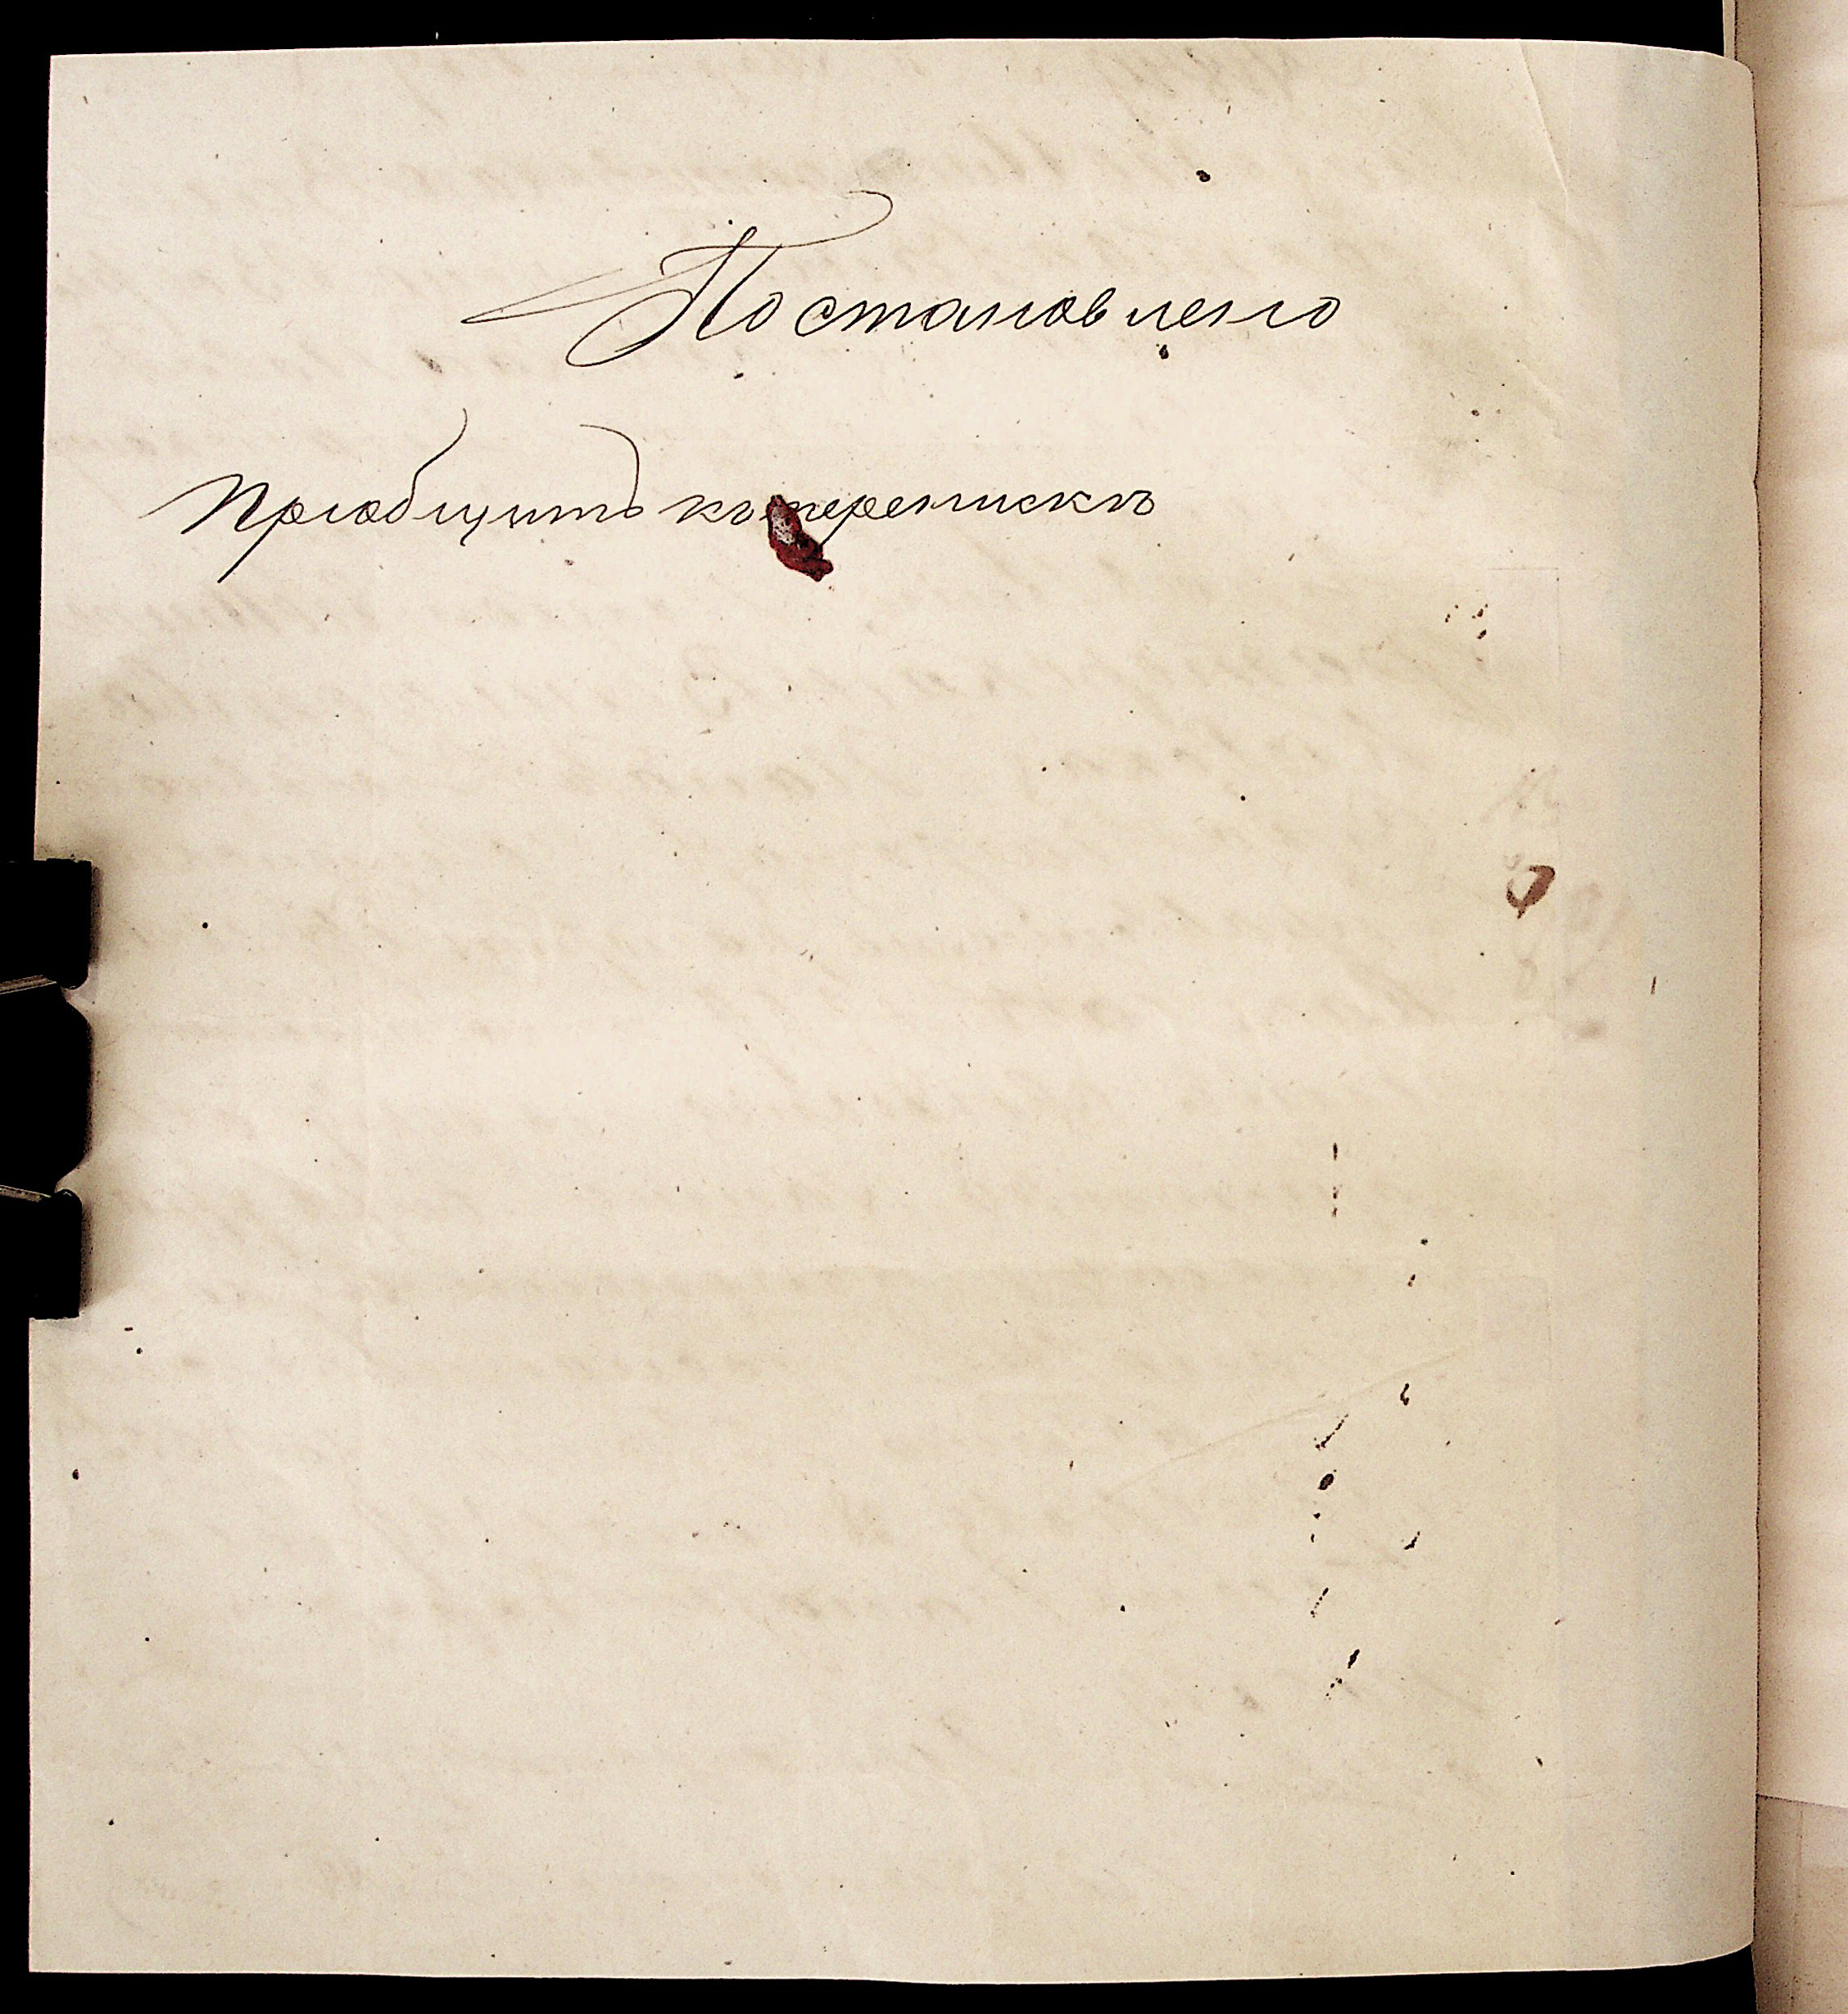 Постановлено
Пріобщить къ перепискѣ